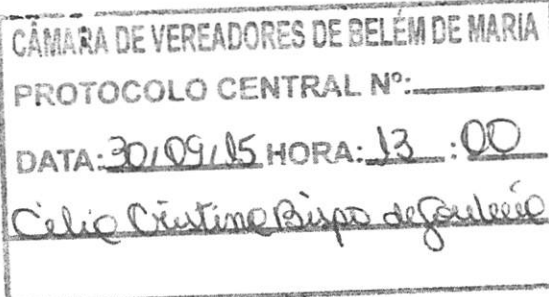 CÂMARA DE VEREADORES DE BELÉM DE MARIA
PROTOCOLO CENTRAL Nº:
DATA: 30/09/15 HORA: 13:00
Celia Cristina Bispo de